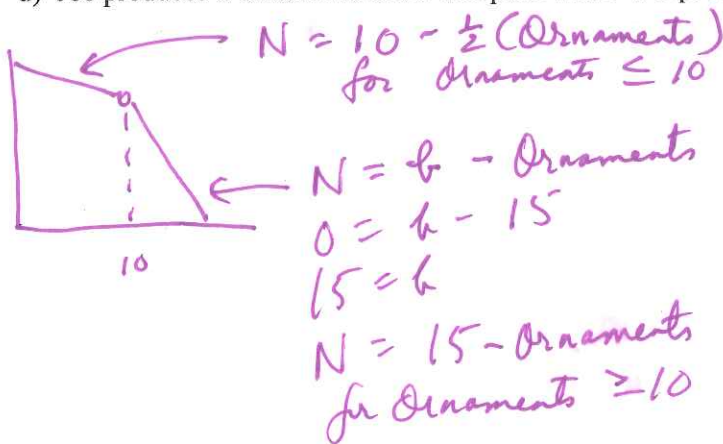 N = 10 - ½ (Ornaments)
for Ornaments ≤ 10
N = b - Ornaments
0 = b - 15
15 = b
N = 15 - Ornaments
for Ornaments ≥ 10
10